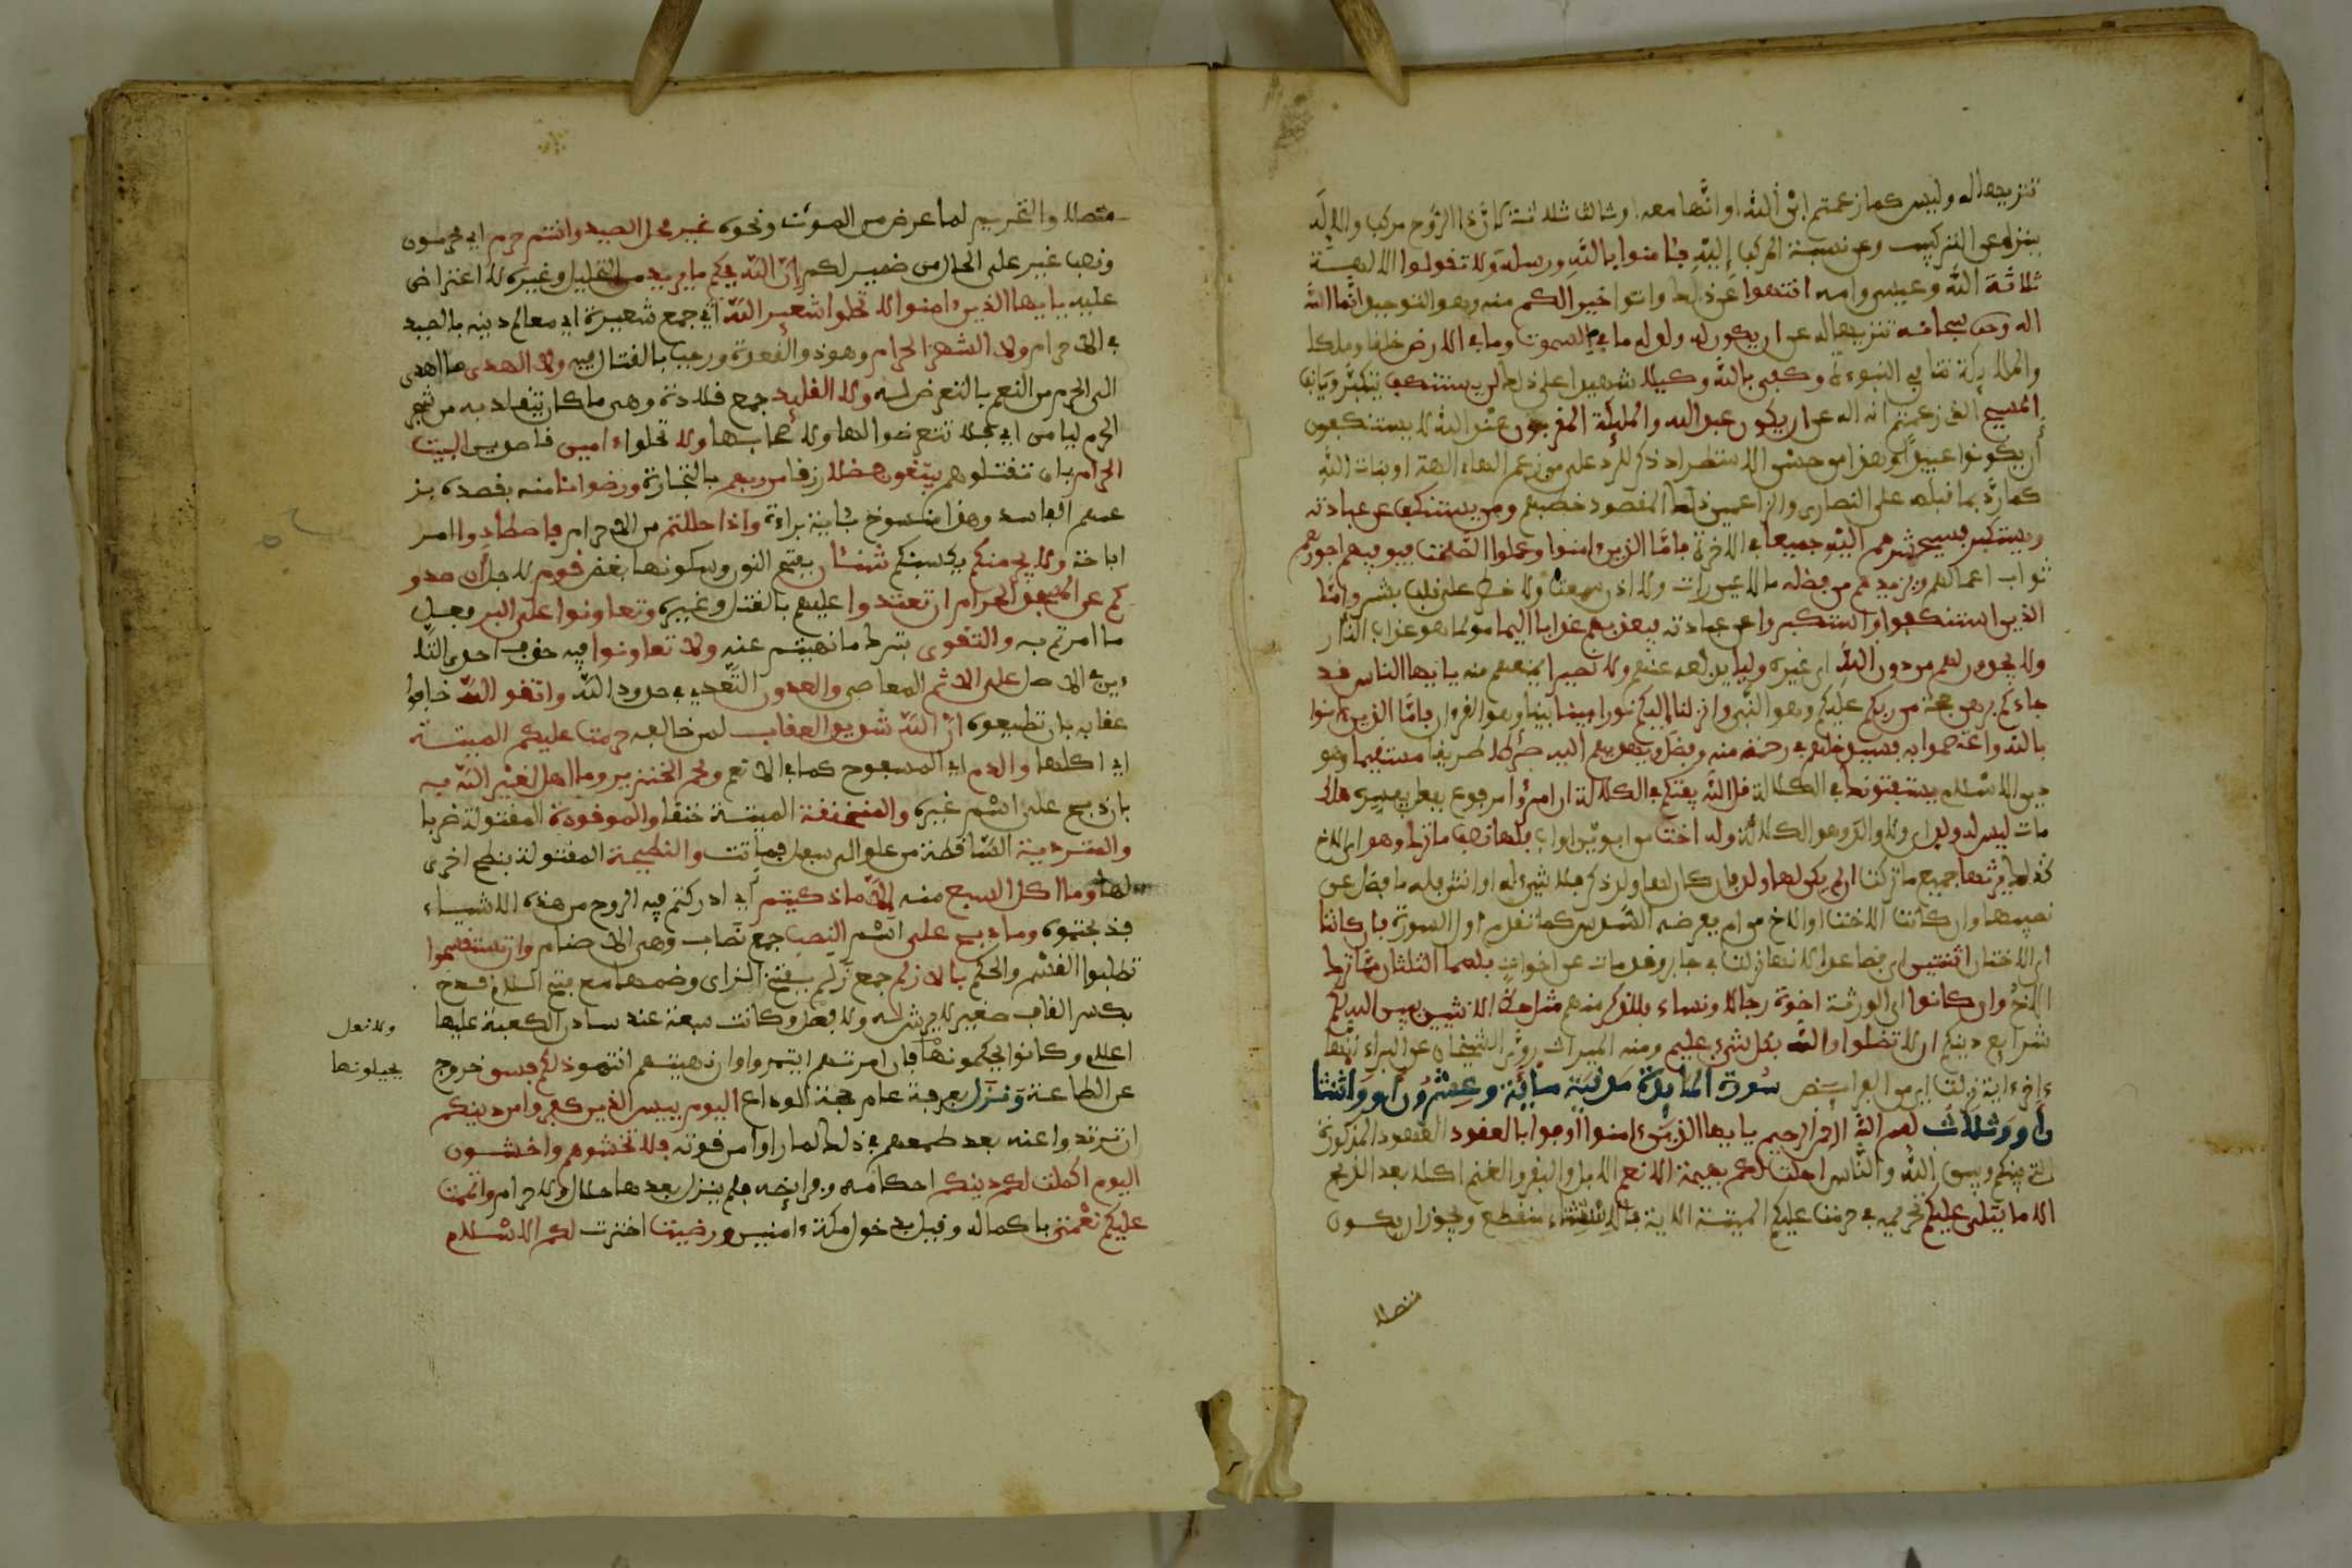 تشريفا له وليس كما زعمتم ابن الله او الها معه او ثالث ثلاثة لان ذا الروح مركب والاله
ينزه عن التركيب وعن نسبة المركب اليه فـٔامنوا بالله ورسله ولا تقولوا الالهة
ثلاثة الله وعيسى وامه انتهوا عن ذلك واتوا خيرا لكم منه وهو التوحيد انما الله
اله وحد سبحنه تنزيها له عن ان يكون له ولد له ما في السموت وما في الارض خلقا وملكا
والملكية تنافي النبوءة وكفى بالله وكيلا شهيدا على ذلك لن يستنكف يتكبر ويانف
المسيح الذي زعمتم انه اله عن ان يكون عبد الله والمليكة المقربون عند الله لا يستنكفون
ان يكونوا عبيدا وهذا من حسن الاستطراد ذكر للرد على من زعم انها ءالهة او بنات الله
كما رد بما قبله على النصارى الزاعمين ذلك المقصود خطبهم ومن يستنكف عن عبادته
ويستكبر فسيحشرهم اليه جميعا في الاخرة فاما الذين ءامنوا وعملوا الصلحت فيوفيهم اجورهم
ثواب اعمالهم ويزيدهم من فضله ما لا عين رات ولا اذن سمعت ولا خطر على قلب بشر واما
الذين استنكفوا واستكبروا عن عبادته فيعذبهم عذابا اليما مولما هو عذاب النار
ولا يجدون لهم من دون الله اي غيره وليا يدفعه عنهم ولا نصيرا يمنعهم منه يايها الناس قد
جاءكم برهن حجة من ربكم عليكم وهو النبي وانزلنا اليكم نورا مبينا بينا وهو القرءان فاما الذين ءامنوا
بالله واعتصموا به فسيدخلهم في رحمة منه وفضل ويهديهم اليه صرطا طريقا مستقيما هو
دين الاسلم يستفتونك في الكلالة قل الله يفتيكم في الكلالة ان امرؤا مرفوع بفعل يفسره هلك
مات ليس له ولد اي ولا والد وهو الكلالة وله اخت من ابوين او اب فلها نصف ما ترك وهو اي الاخ
كذلك يرثها جميع ما تركت ان لم يكن لها ولد فان كان لها ولد ذكر فلا شيء له او انثى فله ما فضل عن
نصيبها وان كانت الاخت او الاخ من ام ففرضه السدس كما تقدم اول السورة فان كانتا
اي الاختان اثنتين اي فصاعدا لانها نزلت في جابر وقد مات عن اخوات فلهما الثلثان مما ترك
الاخ وان كانوا اي الورثة اخوة رجالا ونساء فللذكر منهم مثل حظ الانثيين يبين الله لكم
شرايع دينكم ان لا تضلوا والله بكل شيء عليم ومنه الميراث روى الشيخان عن البراء انها
ءاخر ءاية نزلت اي من الفرايض سورة المايدة مدنية ماية وعشرون او واثنتا
ن او وثلاث بسم الله الرحمن الرحيم يايها الذين ءامنوا اوفوا بالعقود العهود المذكورة
التي بينكم وبين الله والناس احلت لكم بهيمة الانعم الابل والبقر والغنم اكلا بعد الذبح
الا ما يتلى عليكم تحريمه في حرمت عليكم الميتة الاية فالاستثناء منقطع ويجوز ان يكون
متصلا
متصلا والتحريم لما عرض من الموت ونحوه غير محلي الصيد وانتم حرم اي محرمون
ونصب غير على الحال من ضمير لكم ان الله يحكم ما يريد من التحليل وغيره لا اعتراض
عليه يايها الذين ءامنوا لا تحلوا شعير الله اي جمع شعيرة اي معالم دينه بالصيد
في الاحرام ولا الشهر الحرام وهو ذو القعدة ورجب بالقتال فيه ولا الهدي ما اهدي
الى الحرم من النعم بالتعرض له ولا القليد جمع قلادة وهي ما كان يتقلد به من شجر
الحرم ليامن اي فلا تتعرضوا لها ولا صحابها ولا تحلوا ءامين قاصدين البيت
الحرام بان تقتلوهم يبتغون فضلا رزقا من ربهم بالتجارة ورضوانا منه بقصده بز
عمهم الفاسد وهذا منسوخ بٔاية براءة واذا حللتم من الاحرام فاصطادوا امر
اباحة ولا يجرمنكم يكسبنكم شنـٔان بفتح النون وسكونها بغض قوم لاجل ان صدو
كم عن المسجد الحرام ان تعتدوا عليهم بالقتل وغيره وتعاونوا على البر فعل
ما امرتم به والتقوى بترك ما نهيتم عنه ولا تعاونوا فيه حذف احدى التا
ءين في الاصل على الاثم المعاصي والعدون التعدي في حدود الله واتقو الله خافوا
عقابه بان تطيعوه ان الله شديد العقاب لمن خالفه حرمت عليكم الميتة
اي اكلها والدم اي المسفوح كما في الانعم ولحم الخنزير وما اهل لغير الله به
بان ذبح على اسم غيره والمنخنقة الميتة خنقا والموقوذة المقتولة ضربا
والمتردية الساقطة من علو الى سفل فماتت والنطيحة المقتولة بنطح اخرى
لها وما اكل السبع منه الا ما ذكيتم اي ادركتم فيه الروح من هذه الاشياء
فذبحتموه وما ذبح على اسم النصب جمع نصاب وهي الاصنام وان تستقسموا
تطلبوا القسم والحكم بالازلم جمع زلم بفتح الزاي وضمها مع فتح اللام قدح
بكسر القاف صغير لا ريش له ولا فصل وكانت سبعة عند سادن الكعبة عليها
ولا نصل
اعلم وكانوا يحكمونها فان امرتهم ايتمروا وان نهيتهم انتهوا ذلكم فسق خروج
يجيلونها
عن الطاعة ونزل بعرفة عام حجة الوداع اليوم ييس الذين كفروا من دينكم
ان ترتدوا عنه بعد طمعهم في ذلك لما راوا من قوته فلا تخشوهم واخشون
اليوم اكملت لكم دينكم احكامه وفرايضه فلم ينزل بعدها حلال ولا حرام واتممت
عليكم نعمتي باكماله وقيل بدخول مكة ءامنين ورضيت اخترت لكم الاسلم